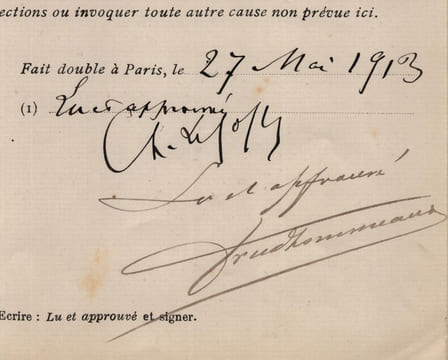 ections ou invoquer toute autre cause non prévue ici.
Fait double à Paris, le 27 Mai 1913
(1) Lu et approuvé
Lu et approuvé
Prudhommeaux
Ecrire : Lu et approuvé et signer.